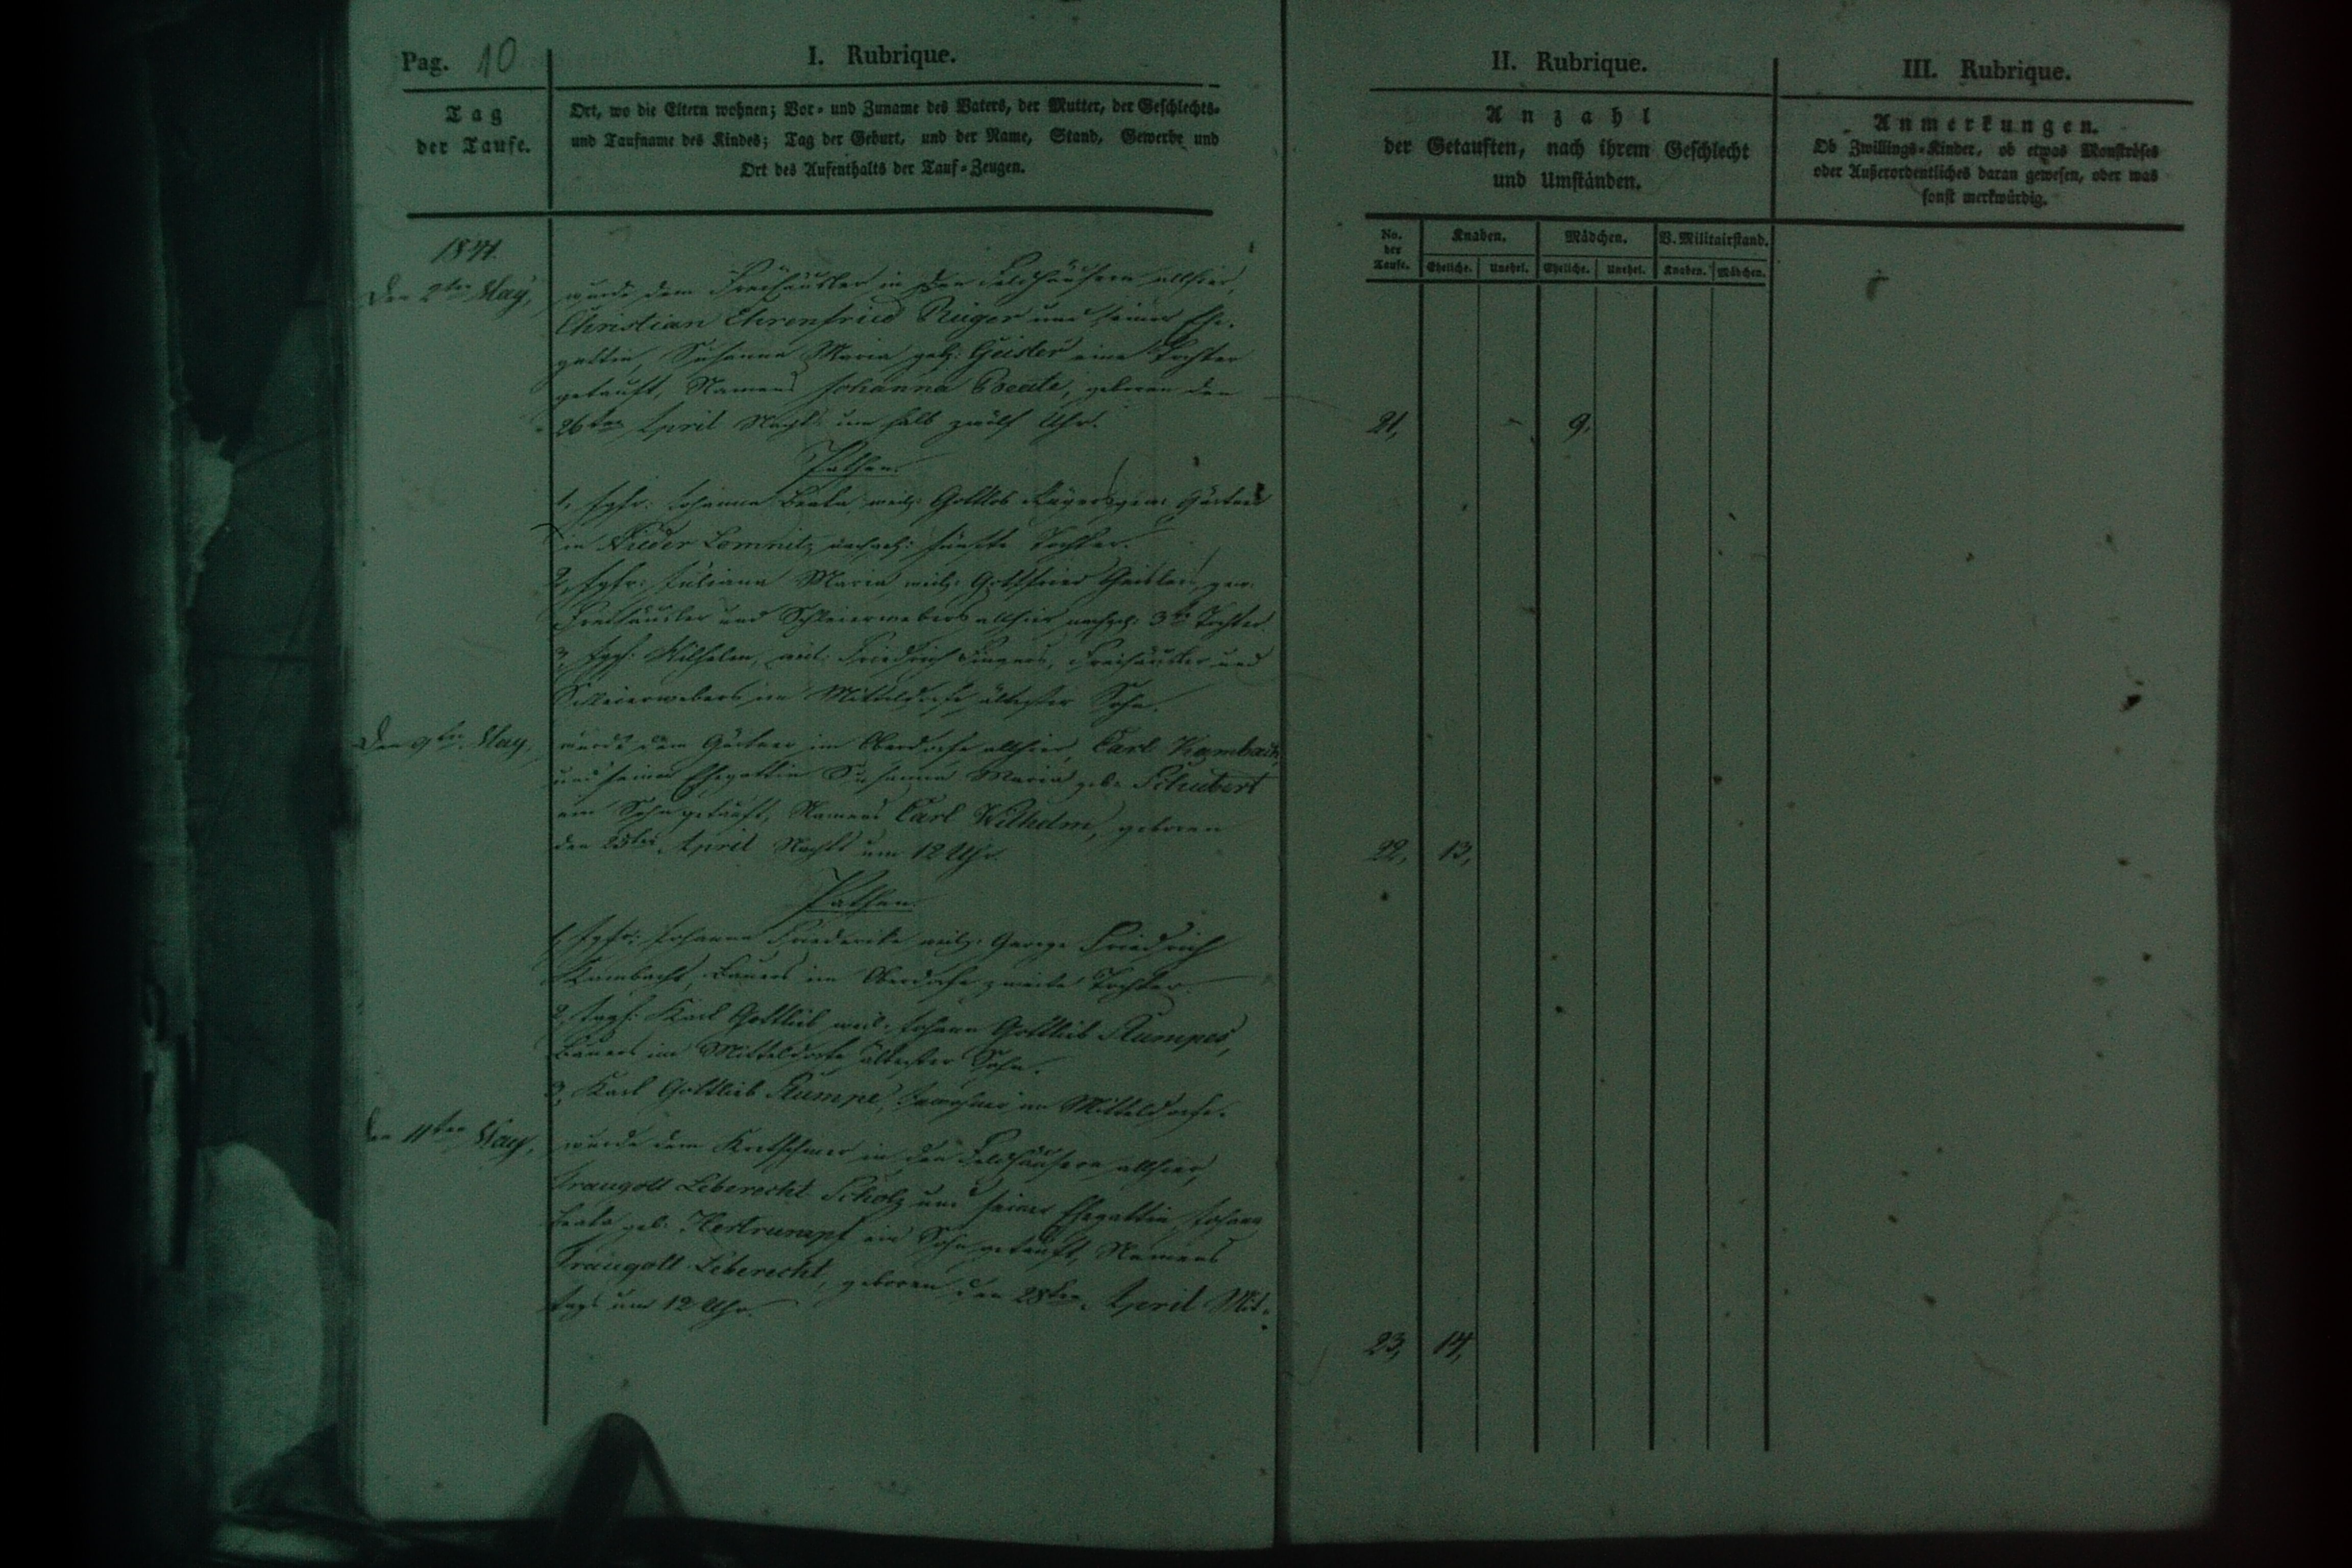 Pag. 10
I. Rubrique.
Tag
der Taufe.
Ort, wo die Eltern wohnen; Vor- und Zuname des Vaters, der Mutter, der Geschlechts-
und Taufname des Kindes; Tag der Geburt, und der Name, Stand, Gewerbe und
Ort des Aufenthalts der Tauf-Zeugen.
1841.
Den 2ten May,
wurde dem Freihäusler in den Feldhäusern allhier,
Christian Ehrenfried Rüger und seiner Ehe-
gattin, Susanna Maria geb: Geisler eine Tochter
getauft, Namens Johanna Beate, geboren den
26ten April Nachts um halb zwölf Uhr.
Pathen.
1, Igfr: Johanna Beata, weil: Gottlob gew: Gärtners
in Nieder Lomnitz nachgel: fünfte Tochter.
2, Igfr: Juliana Maria weil: Gottfried Geisler, gew.
Freihäusler und Schleierwebers allhier nachgel: 3te Tochter.
3, Iggs. Wilhelm, Friedrich Freihäusler und
Schleierwebers im Mitteldorfe ältester Sohn.
Den 9ten May,
wurde dem Gärtner im Oberdorfe allhier, Carl
und seiner Ehegattin Susanna Maria geb: Schubert
ein Sohn getauft, Namens Carl Wilhelm, geboren
den 25ten April Nachts um 12 Uhr.
Pathen.
1, Igfr: Johanna Friederike George Friedrich
Kambachs, Bauers im Oberdorfe zweite Tochter.
2, Iggs: Karl Gottlieb Johann Gottlieb Rumpes,
Bauers im Mitteldorfe ältester Sohn.
3, Karl Gottlieb Rumpe, Inwohner im Mitteldorfe.
Den 11ten May,
wurde dem Kretschmer in den Feldhäusern allhier,
Traugott Leberecht Scholz und seiner Ehegattin Johanna
Beata geb: Hertrumpf ein Sohn getauft, Namens
Traugott Leberecht, geboren den 28ten April Mit-
tags um 12 Uhr.
II. Rubrique.
Anzahl
der Getauften, nach ihrem Geschlecht
und Umständen.
No. der Taufe.
Knaben. Mädchen. V. Militairstand.
Eheliche. Unehel. Eheliche. Unehel. Knaben. Mädchen.
21, 9,
22, 13,
23, 14,
III. Rubrique.
Anmerkungen.
Ob Zwillings-Kinder, ob etwas Monströses
oder Außerordentliches daran gewesen, oder was
sonst merkwürdig.